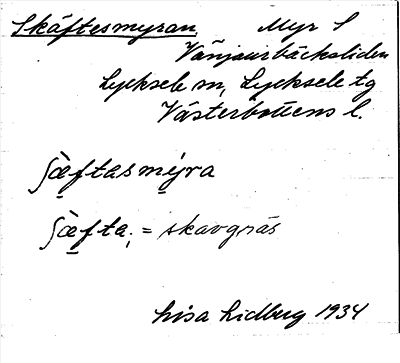 Skäftesmyran Myr S
Vänjaurbäcksliden
Lycksele m, Lycksele tg
Västerbottens l.
ʃæ̀ftasmýra
ʃæ̀fta; = skavgräs
Lisa Lidberg 1934